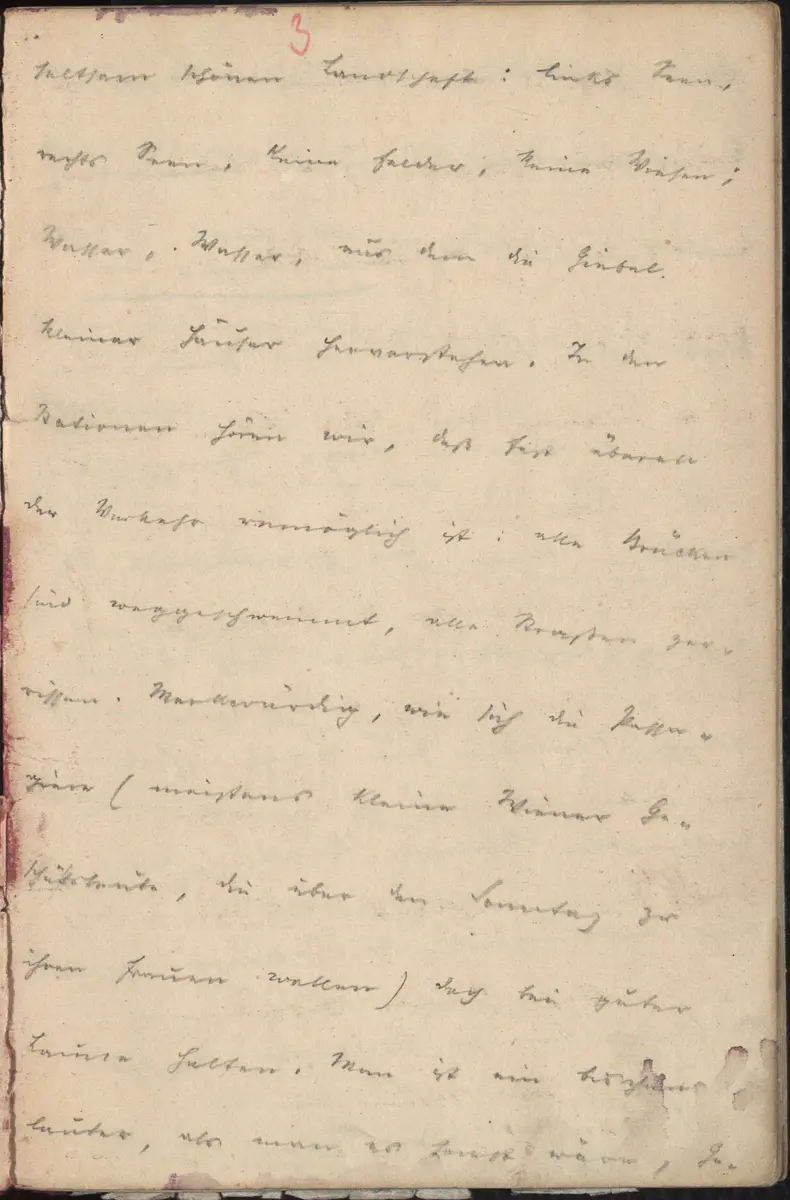 3
seltsam schönen Landschaft: links Seen,
rechts Seen, keine Felder, keine Wiesen;
Wasser, Wasser, aus dem die Giebel
kleiner Häuser hervorstehen. In den
Stationen hören wir, daß fast überall
der Verkehr unmöglich ist: alle Brücken
sind weggeschwemmt, alle Straßen zer-
rissen. Merkwürdig, wie sich die Passa-
giere (meistens kleine Wiener Ge-
schäftsleute, die über den Sonntag zu
ihren Frauen wollen) doch bei guter
Laune halten. Man ist ein bischen
lauter, als man es sonst wäre, ge-